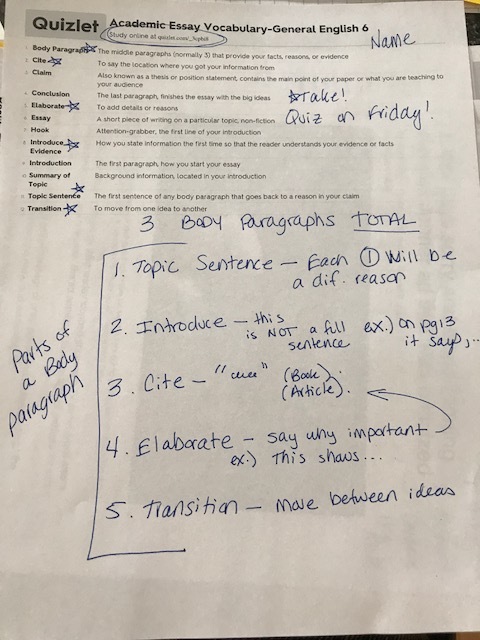 Quizlet Academic Essay Vocabulary-General English 6
Study online at quizlet.com/
Name
1. Body Paragraph The middle paragraphs (normally 3) that provide your facts, reasons, or evidence
2. Cite To say the location where you got your information from
3. Claim Also known as a thesis or position statement, contains the main point of your paper or what you are teaching to
your audience
4. Conclusion The last paragraph, finishes the essay with the big ideas
Take!
5. Elaborate To add details or reasons
6. Essay A short piece of writing on a particular topic, non-fiction
Quiz on Friday!
7. Hook Attention-grabber, the first line of your introduction
8. Introduce How you state information the first time so that the reader understands your evidence or facts
Evidence
9. Introduction The first paragraph, how you start your essay
10. Summary of Background information, located in your introduction
Topic
11. Topic Sentence The first sentence of any body paragraph that goes back to a reason in your claim
12. Transition To move from one idea to another
3 Body Paragraphs TOTAL
Parts of
a Body
paragraph
1. Topic Sentence – Each 1 will be
a dif. reason
2. Introduce – this
is NOT a full
sentence
ex.) on pg 13
it says,...
3. Cite – " " (Book).
(Article).
4. Elaborate – say why important
ex.) This shows...
5. Transition – Move between ideas